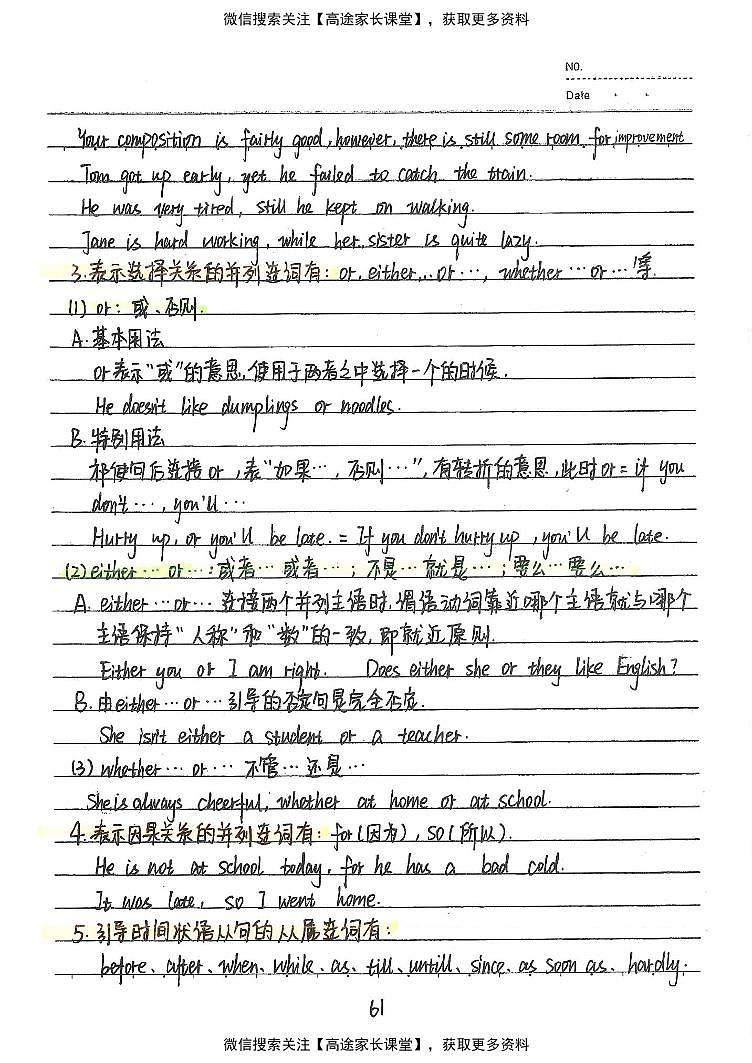 微信搜索关注【高途家长课堂】，获取更多资料
NO.
Date
Your composition is fairly good, however, there is still some room for improvement
Tom got up early, yet he failed to catch the train.
He was very tired, still he kept on walking.
Jane is hard working, while her sister is quite lazy.
3.表示选择关系的并列连词有: or, either…or…, whether…or…等.
(1) or: 或、否则.
A.基本用法
or表示"或"的意思,使用于两者之中选择一个的时候.
He doesn't like dumplings or noodles.
B.特别用法
祈使句后连接or,表"如果…,否则…",有转折的意思,此时or=if you
don't…,you'll…
Hurry up, or you'll be late. = If you don't hurry up, you'll be late.
(2) either…or…:或者…或者…;不是…就是…;要么…要么…
A. either…or…连接两个并列主语时,谓语动词靠近哪个主语就与哪个
主语保持"人称"和"数"的一致,即就近原则.
Either you or I am right. Does either she or they like English?
B.由either…or…引导的否定句是完全否定.
She isn't either a student or a teacher.
(3) whether…or…不管…还是…
She is always cheerful, whether at home or at school.
4.表示因果关系的并列连词有: for(因为), so(所以).
He is not at school today, for he has a bad cold.
It was late, so I went home.
5.引导时间状语从句的从属连词有:
before、after、when、while、as、till、untill、since、as soon as、hardly.
61
微信搜索关注【高途家长课堂】，获取更多资料